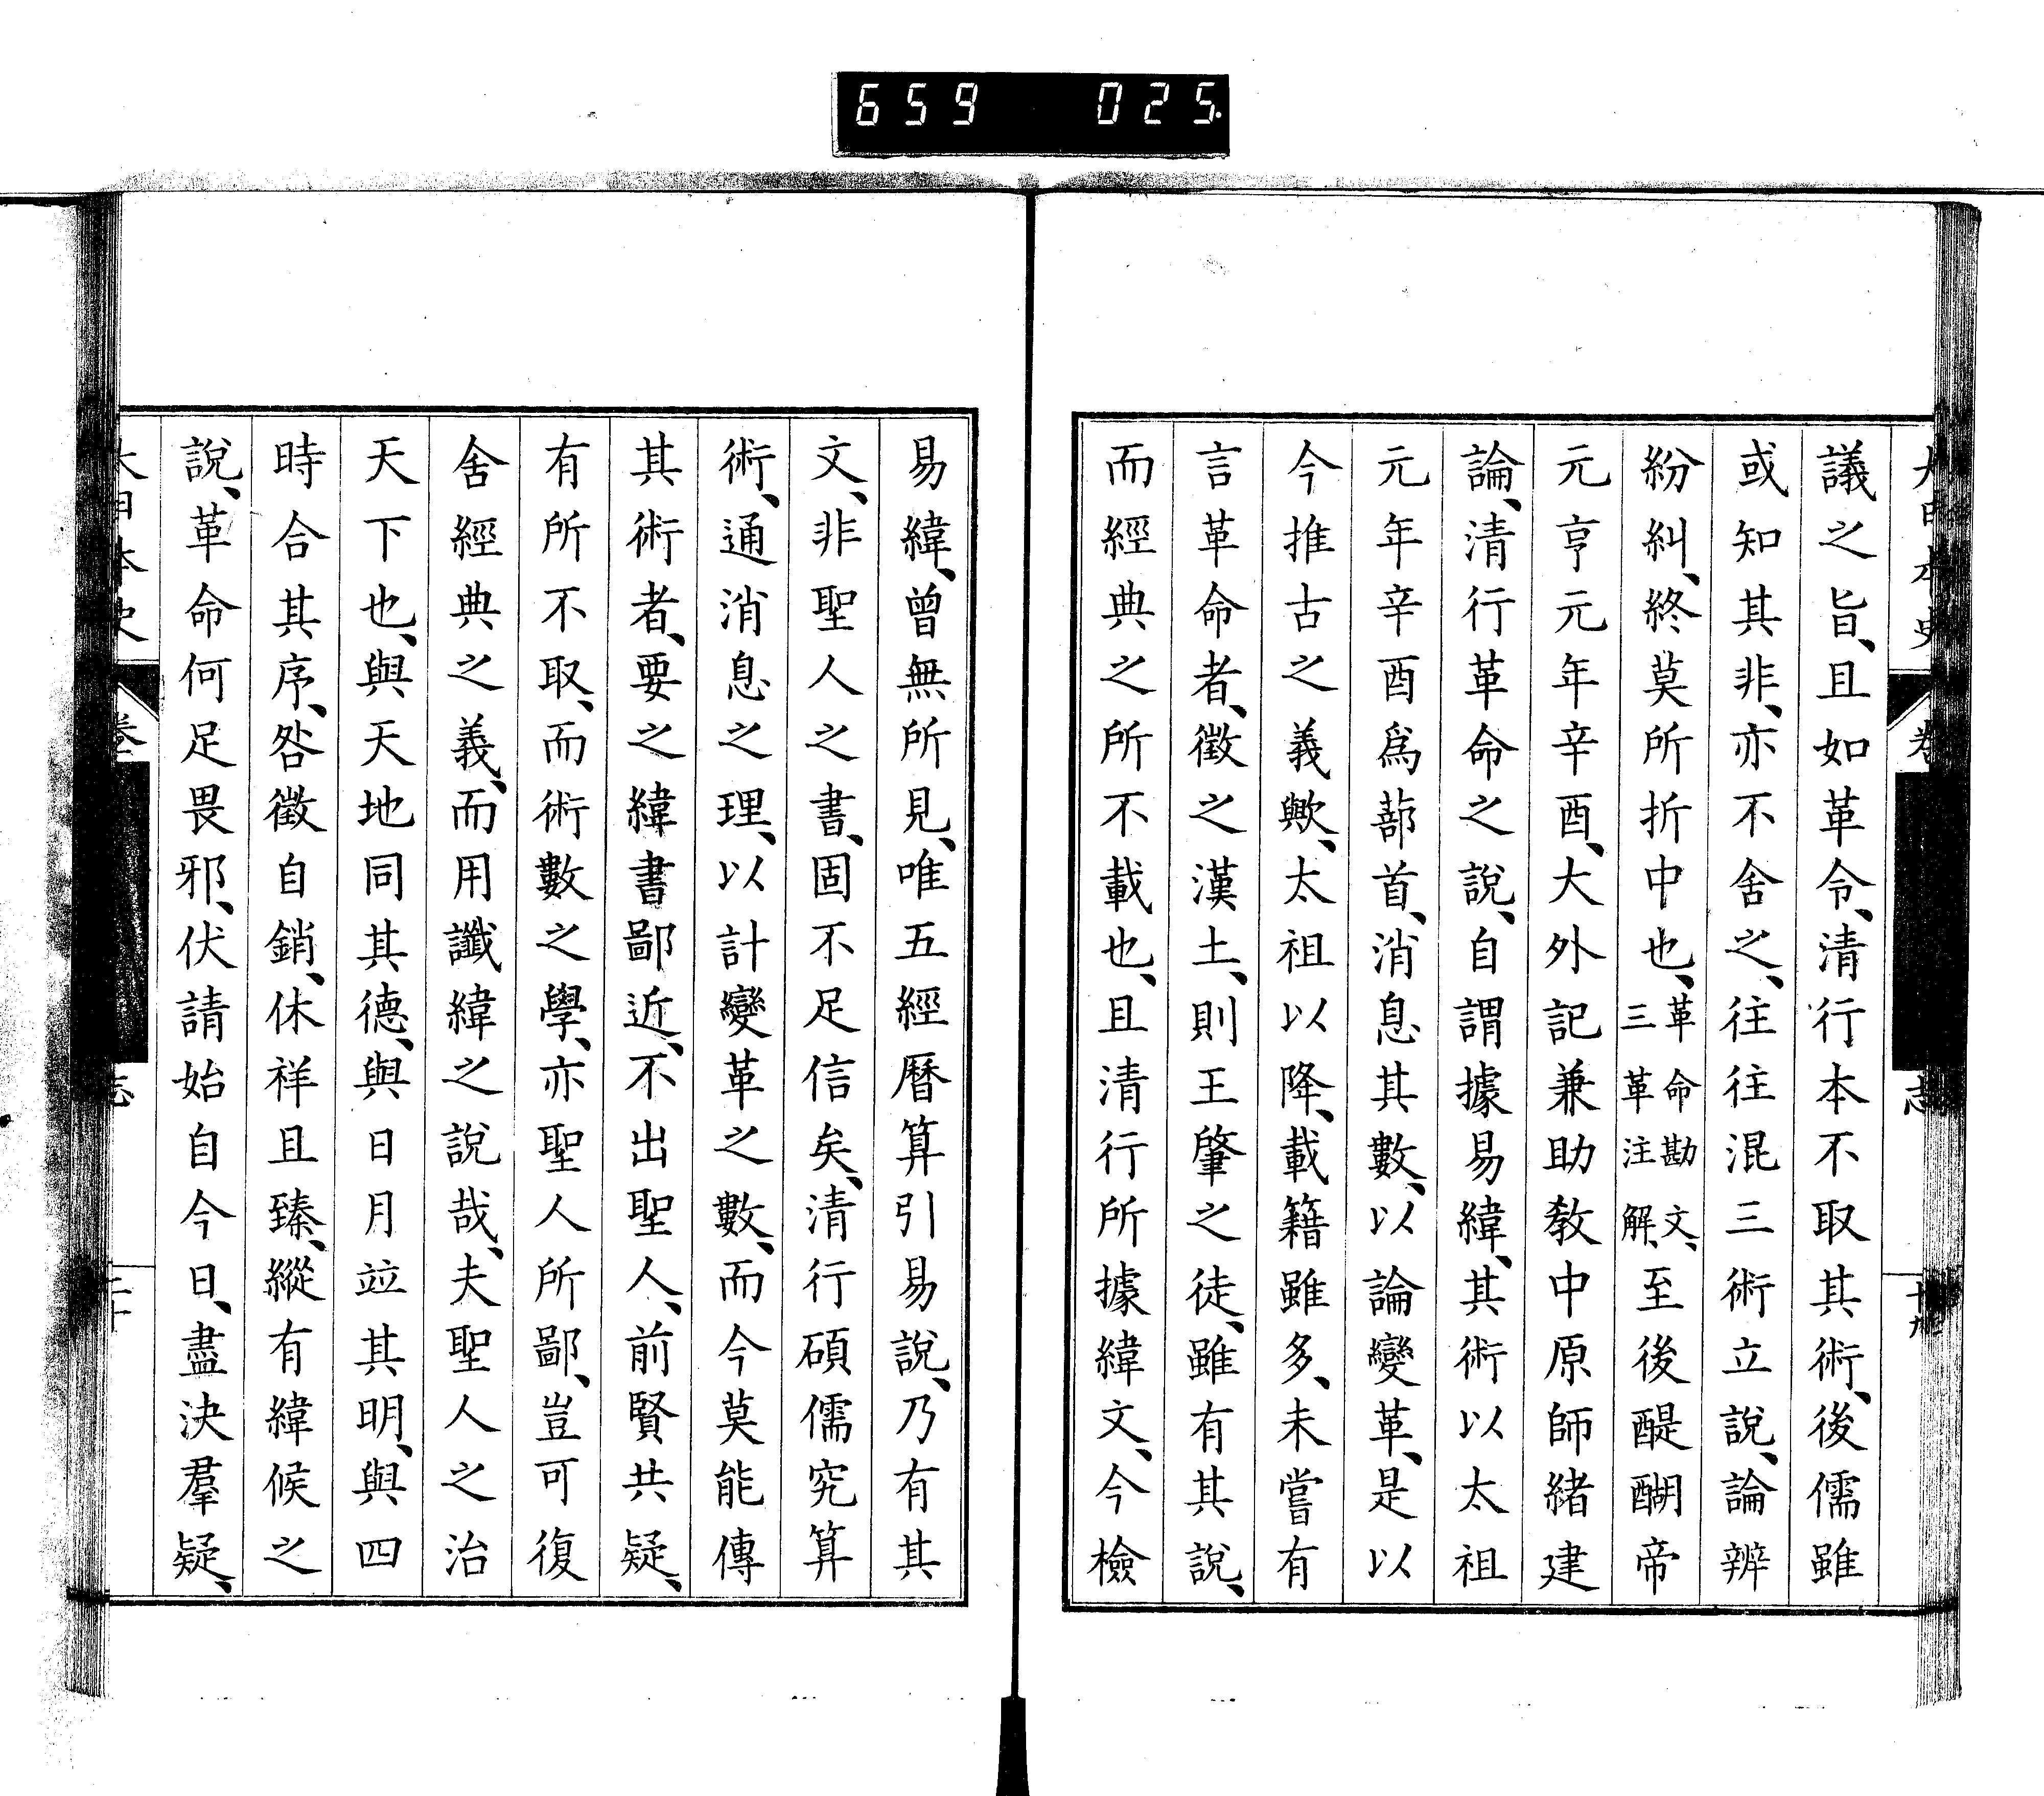 659 025.
大日本史 卷 志 十九
議之旨、且如革令、清行本不取其術、後儒雖
或知其非、亦不舍之、往往混三術立說、論辨
紛糾、終莫所折中也、革命勘文、三革注解、至後醍醐帝
元亨元年辛酉、大外記兼助教中原師緒建
論、清行革命之說、自謂據易緯、其術以太祖
元年辛酉爲蔀首、消息其數、以論變革、是以
今推古之義歟、太祖以降、載籍雖多、未嘗有
言革命者、徵之漢土、則王肇之徒、雖有其說、
而經典之所不載也、且清行所據緯文、今檢
易緯、曾無所見、唯五經曆算引易說、乃有其
文、非聖人之書、固不足信矣、清行碩儒究算
術、通消息之理、以計變革之數、而今莫能傳
其術者、要之緯書鄙近、不出聖人、前賢共疑、
有所不取、而術數之學、亦聖人所鄙、豈可復
舍經典之義、而用讖緯之說哉、夫聖人之治
天下也、與天地同其德、與日月竝其明、與四
時合其序、咎徵自銷、休祥且臻、縱有緯候之
說、革命何足畏邪、伏請始自今日、盡決羣疑、
大日本史 卷 志 二十